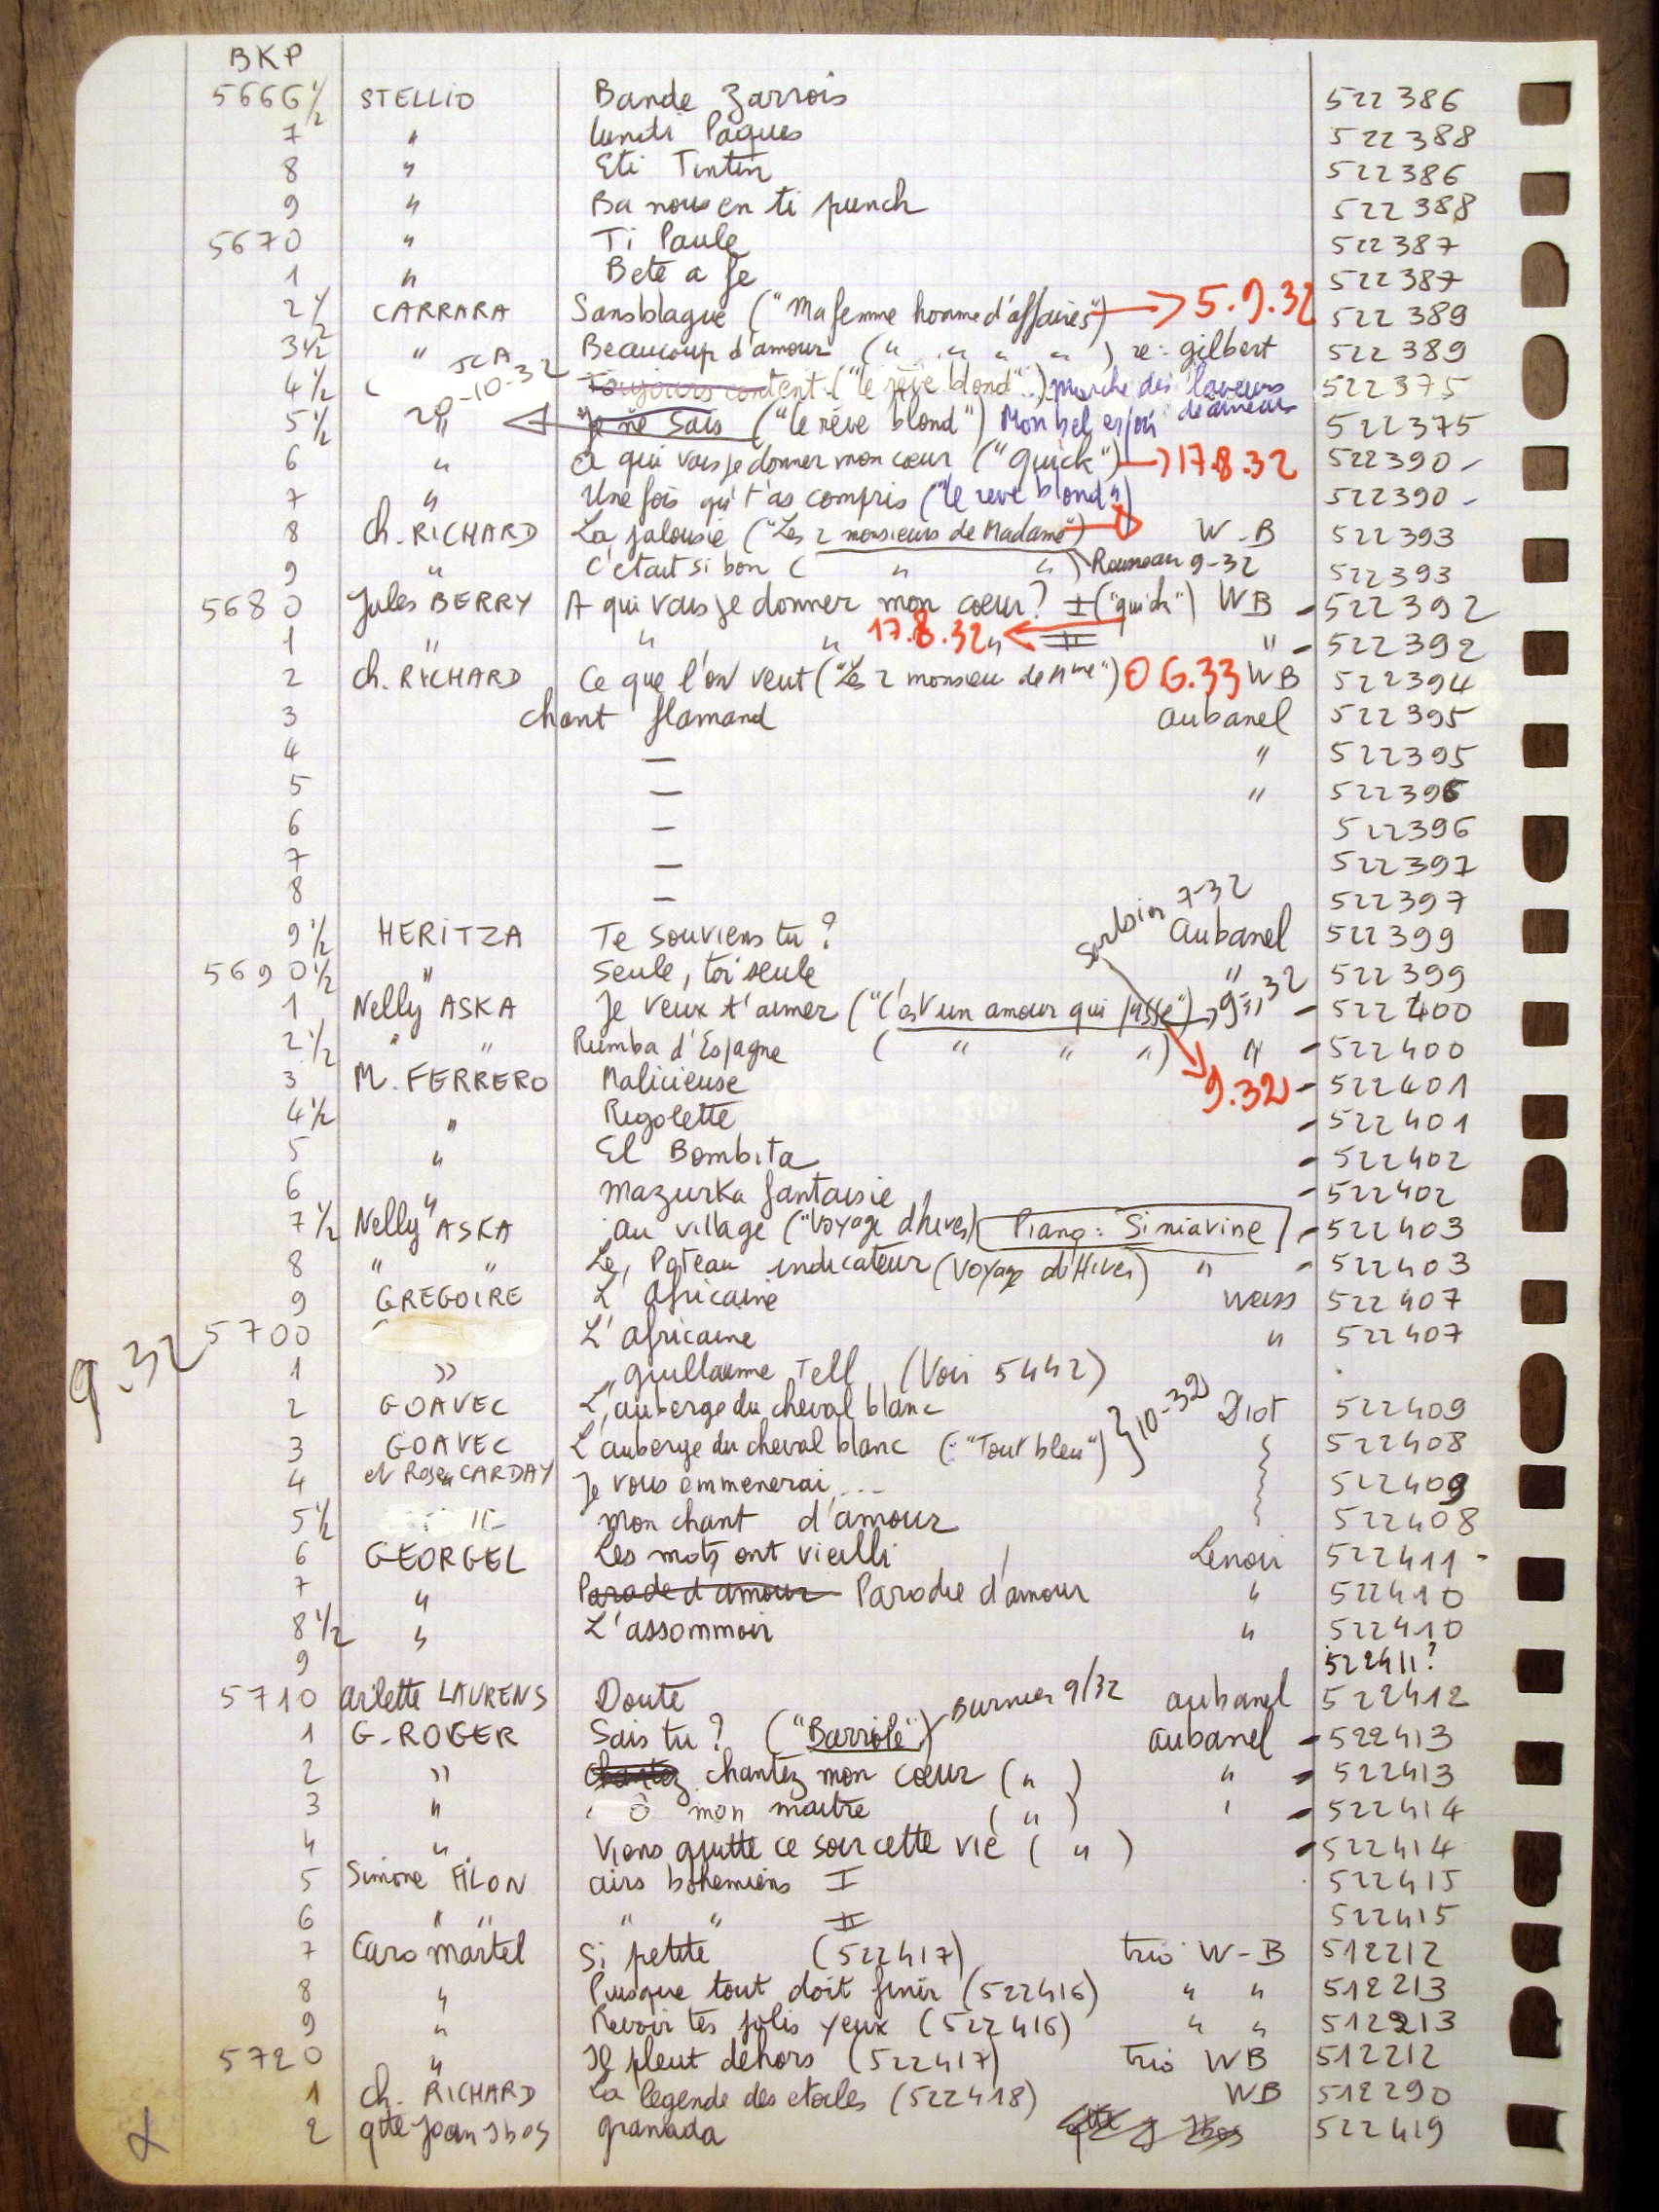 BKP
5666 1/2 STELLIO Bande Zarrois 522386
7 " lundi Paques 522388
8 " Eti Tintin 522386
9 " Ba nous en ti punch 522388
5670 " Ti Paule 522387
1 " Bete a fe 522387
2 1/ CARRARA Sansblague ("Ma femme homme d'affaires") → 5.9.32 522389
3 1/2 " Beaucoup d'amour (" " " ") re: gilbert 522389
4 1/2 JCA 20-10-32 Toujours content ("le rêve blond") marche des laveurs 522375
5 1/2 " Je ne sais ("le rêve blond") Mon bel espoir 522375
6 " A qui vais je donner mon cœur ("quick") → 17.8.32 522390 -
7 " Une fois qu't'as compris ("le reve blond") 522390 -
8 Ch. RICHARD La jalousie ("Les 2 monsieurs de Madame") → W-B 522393
9 " C'etait si bon ( " " ) Rousseau 9-32 522393
5680 Jules BERRY A qui vais je donner mon cœur? I ("quick") WB - 522392
1 " " " 17.8.32 " II " - 522392
2 Ch. RICHARD Ce que l'on veut ("Les 2 monsieu de Mme") O 6.33 WB 522394
3 chant flamand aubanel 522395
4 — " 522395
5 — " 522396
6 — 522396
7 — 522397
8 — 522397
Sorbin 7-32
9 1/2 HERITZA Te souviens tu? Aubanel 522399
5690 1/2 " Seule, toi seule " 522399
1 Nelly ASKA Je veux t'aimer ("C'est un amour qui passe") → 9-32 " - 522400
2 1/2 " " Rumba d'Espagne ( " " " ) " - 522400
3 M. FERRERO Malicieuse 9.32 - 522401
4 1/2 " Rigolette - 522401
5 " El Bombita - 522402
6 " mazurka fantaisie - 522402
7 1/2 Nelly ASKA au village ("Voyage d'hiver) Piano: Siniavine - 522403
8 " " Le Poteau indicateur (Voyage d'Hiver) " - 522403
9 GREGOIRE L'Africaine Weiss 522407
9.32 5700 L'africaine " 522407
1 " guillaume Tell (Voir 5442)
2 GOAVEC L'auberge du cheval blanc } 10-32 Diot 522409
3 GOAVEC L'auberge du cheval blanc (: "Tout bleu") 522408
4 et Rosa CARDAY Je vous emmenerai ... 522409
5 1/2 " mon chant d'amour 522408
6 GEORGEL Les mots ont vieilli Lenoir 522411 -
7 " Parade d'amour Parodie d'amour " 522410
8 1/2 " L'assommoir " 522410
9 522411?
5710 arlette LAURENS Doute aubanel 522412
1 G. ROGER Sais tu? ("Barriole") Burnier 9/32 aubanel - 522413
2 " Chantez chantez mon cœur ( " ) " - 522413
3 " Ô mon maitre ( " ) ' - 522414
4 " Viens quitte ce soir cette vie ( " ) - 522414
5 Simone FILON airs bohemiens I 522415
6 " " " " II 522415
7 Caro martel Si petite (522417) trio W-B 512212
8 " Puisque tout doit finir (522416) " " 512213
9 " Revoir tes jolis yeux (522416) " " 512213
5720 " Il pleut dehors (522417) trio WB 512212
1 Ch. RICHARD La legende des etoiles (522418) WB 512290
2 qtte Joan Ibos granada 522419